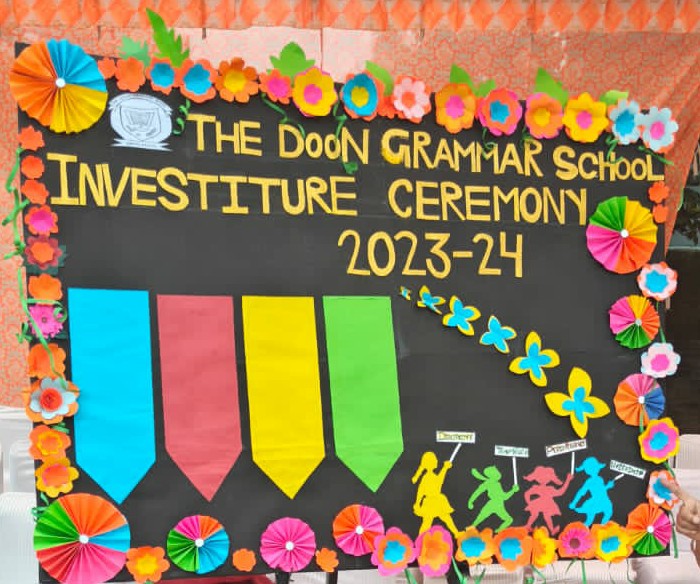 THE DOON GRAMMAR SCHOOL
INVESTITURE CEREMONY
2023-24